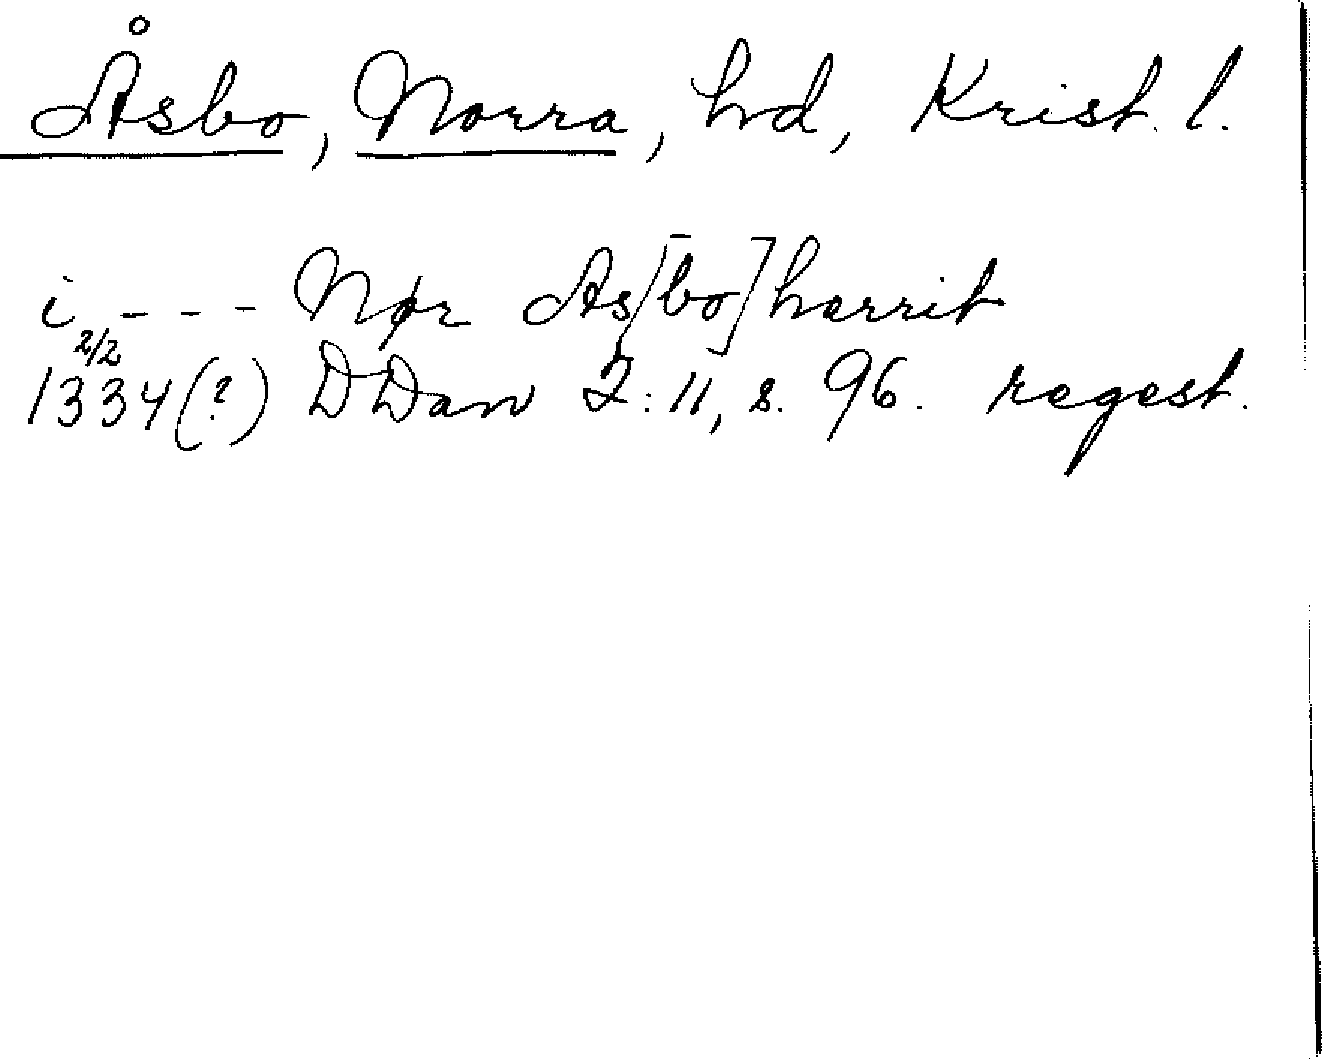 Åsbo, Norra, hd, Krist. l.
i - - - Nør As[bo]herrit
2/2
1334(?) DDan 2:11, s. 96. regest.